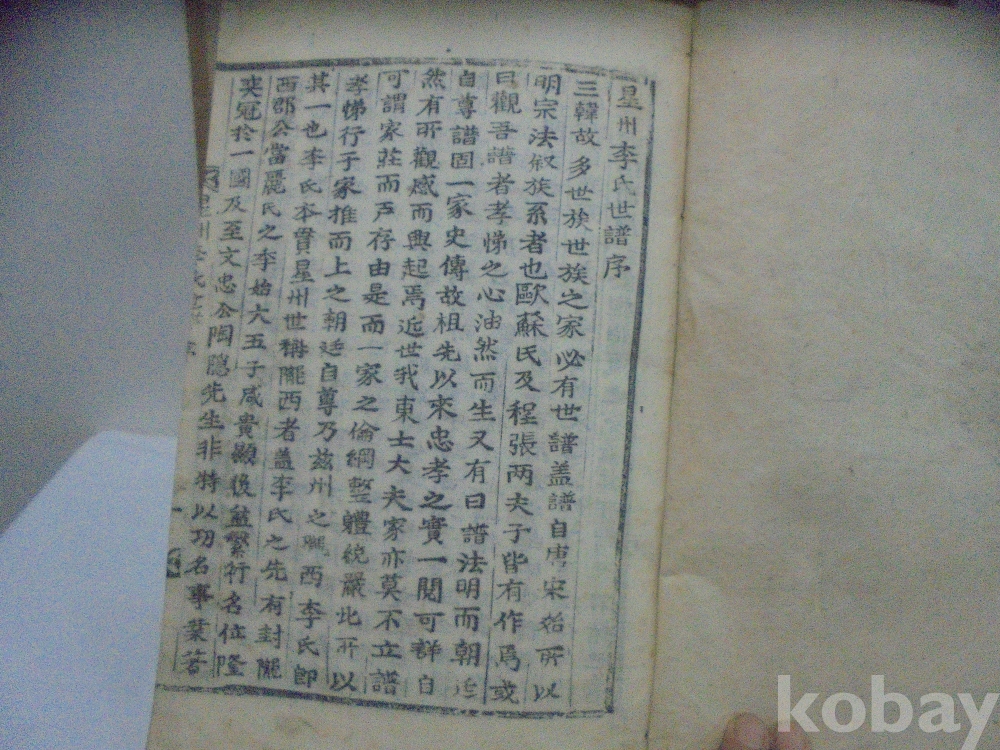 星州李氏世譜序
三韓故多世族世族之家必有世譜盖譜自唐宋始所以
明宗法叙族系者也歐蘇氏及程張两夫子皆有作焉或
曰觀吾譜者孝悌之心油然而生又有曰譜法明而朝廷
自尊譜固一家史傳故祖先以來忠孝之實一閱可詳自
然有所觀感而興起焉近世我東士大夫家亦莫不立譜
可謂家莊而戶存由是而一家之倫綱整軆統嚴此所以
孝悌行于家推而上之朝廷自尊乃玆州之隴西李氏即
其一也李氏本貫星州世稱隴西者盖李氏之先有封隴
西郡公當麗氏之季始大五子咸貴顯後益繁衍名位隆
奕冠於一國及至文忠公陶隱先生非特以功名事業著
星州李氏世譜 序
一
kobay